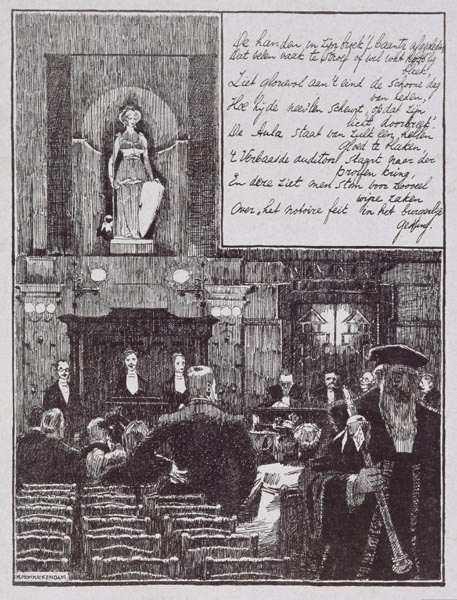 De handen in zijn broek, 't baantje afgesleten
Dat velen vaak te stroef of wel wat
bleek,
Ziet glorievol aan 't eind de schoone dag
van heden,
Hoe hij de nevelen scheurt, opdat zijn
licht doorbreek'.
De Aula staat van zulk een hellen
gloed te blaken,
't Verbaasde auditoor staart naar der
proffen kring,
En deze ziet men stom voor zooveel
wijze zaken
Over, het notoire feit in het burgerlijk
Geding.
M. MONNICKENDAM